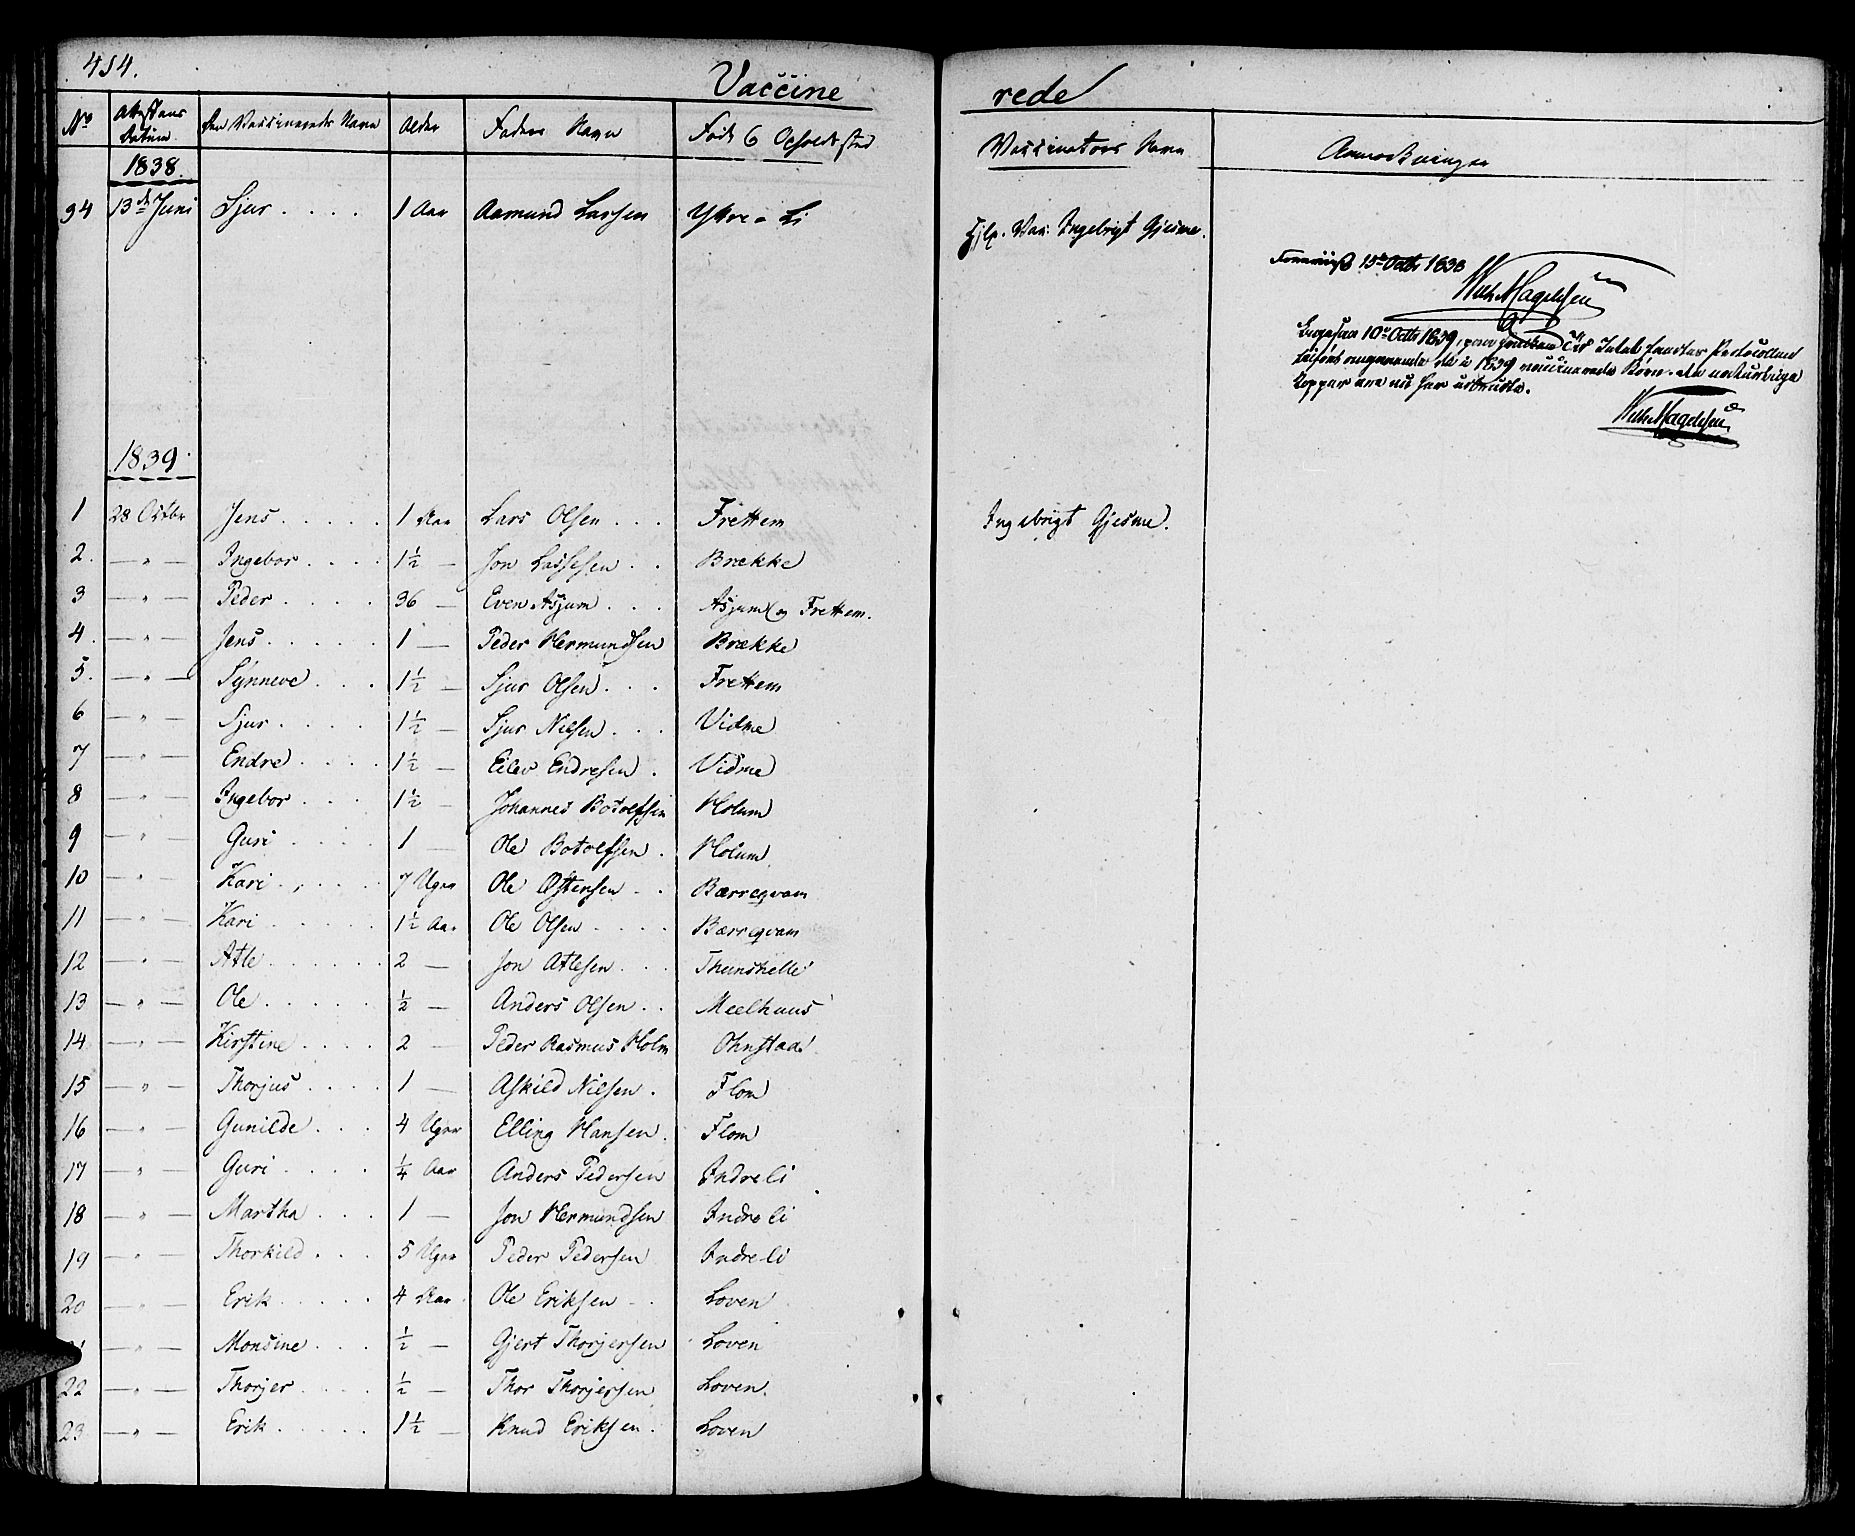 454.
Vaccinerede
No Attestens Datum Den Vaccineredes Navn Alder Faders Navn Føde & Opholdssted Vaccinators Navn Anmærkninger
1838.
94 13de Juni Sjur .... 1 Aar Aamund Lassen Yttre-Li Hjlp. Vac. Ingebrigt Gjesme.
15de Octbr 1838
Wilh Magelssen
10de Octbr 1839, Protocollen
de i 1839 vaccinerede Børn. de naturlige
Kopper
Wilh Magelssen
1839.
1 28 Octbr Jens ..... 1 Aar Lars Olsen ... Frettem Ingebrigt Gjesme.
2. — " — Ingebor .... 1½ — Jon Lassesen .. Brække
3 — " — Peder .... 36 — Even Asjum ... Asjum og Frettem.
4. — " — Jens ..... 1 — Peder Hermundsen Brække
5. — " — Synneve ... 1½ — Sjur Olsen ... Frettem
6 — " — Sjur ..... 1½ — Sjur Nilsen ... Vidme
7 — " — Endre .... 1½ — Eilev Endresen . Vidme
8 — " — Ingebor ... 1½ — Johannes Botolfsen Holum
9 — " — Guri .... 1 — Ole Botolfsen . Holum
10 — " — Kari ..... 7 Uger Ole Østensen .. Bærreqvam
11 — " — Kari ..... 1½ Aar Ole Olsen .... Bærreqvam
12 — " — Atle ..... 2 — Jon Atlesen ... Thunshelle
13 — " — Ole ..... ½ — Anders Olsen .. Meelhuus
14 — " — Kirstine .... 2 — Peder Rasmus Holm Ohnstad
15 — " — Thorjus .... 1 — Askild Nilsen . Flom
16 — " — Gunilde ... 4 Uger Elling Hansen . Flom
17 — " — Guri .... ¼ Aar Anders Pedersen Indreli
18 — " — Martha ... 1 — Jon Hermundsen Indreli
19 — " — Thorkild ... 5 Uger Peder Pedersen Indreli
20 — " — Erik ..... 4 Aar Ole Eriksen .. Loven
— " — Monsine ... ½ — Gjert Thorjersen Loven
22 — " — Thorjer .... ½ — Thor Thorjersen Loven.
23 — " — Erik ..... 1½ — Knud Eriksen . Loven